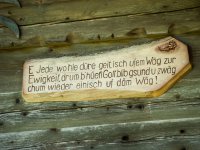 E Jede wo hie düre geit isch ufem Wäg zur
Ewigkeit, drum bhüeti Gott blib gsund u zwäg
chum wieder einisch uf däm Wäg!